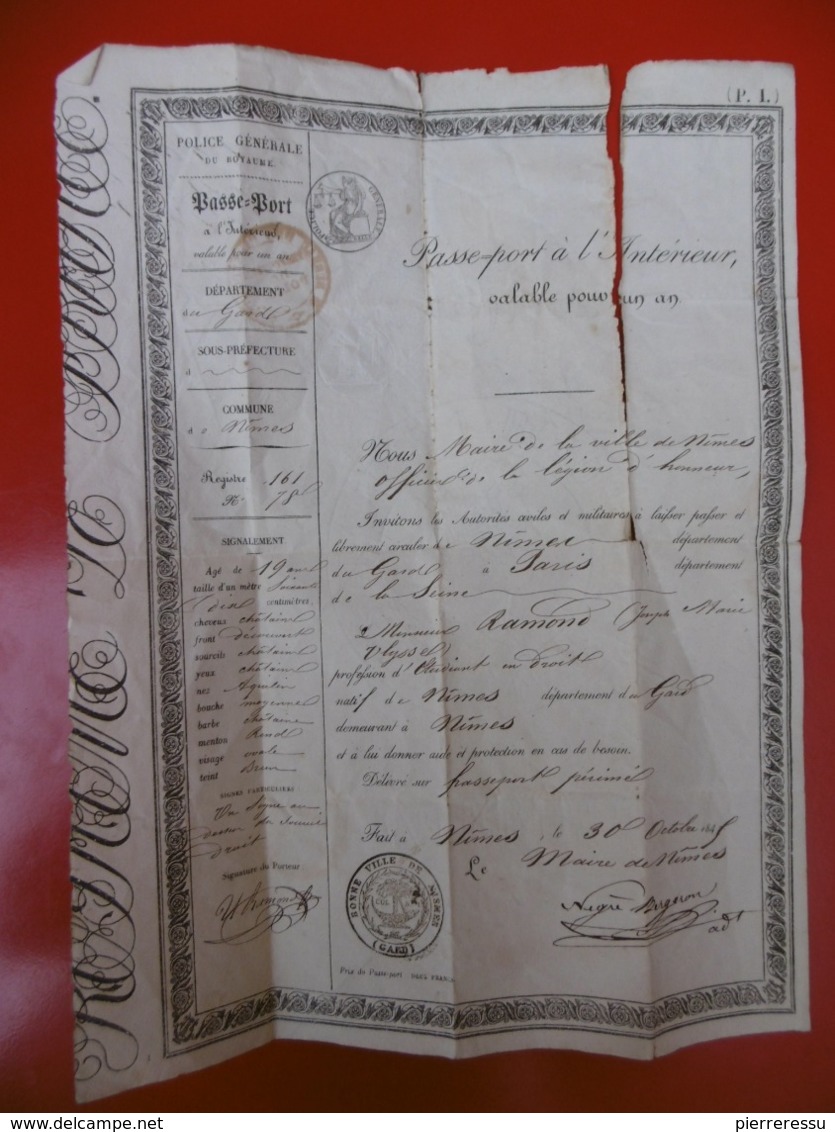 (P. I.)
POLICE GÉNÉRALE
DU ROYAUME.
Passe-Port
à l'Intérieur,
valable pour un an
DÉPARTEMENT
du Gard
SOUS-PRÉFECTURE
d
COMMUNE
de Nîmes
Registre 161
N° 78
SIGNALEMENT
Agé de 19 ans
taille d'un mètre Soixante
dix centimètres,
cheveux châtains
front découvert
sourcils châtains
yeux châtains
nez Aquilin
bouche moyenne
barbe châtaine
menton Rond
visage ovale
teint Brun
SIGNES PARTICULIERS
Un Signe au
dessus du Sourcil
droit
Signature du Porteur
GÉNÉRALE
Passe-port à l'Intérieur,
valable pour un an
Nous Maire de la ville de Nîmes
officier de la légion d'honneur,
Invitons les Autorités civiles et militaires à laisser passer et
librement circuler de Nîmes département
du Gard à Paris département
de la Seine
Monsieur Ramond (Joseph Marie
Ulysse)
profession d'Etudiant en Droit
natif de Nîmes département du Gard
demeurant à Nîmes
et à lui donner aide et protection en cas de besoin.
Délivré sur passeport périmé
Fait à Nîmes, le 30 Octobre
Le Maire de Nîmes
adt
BONNE VILLE DE NISMES
COL
(GARD)
Prix du Passe-port DEUX FRANCS
delcampe.net
pierreressu